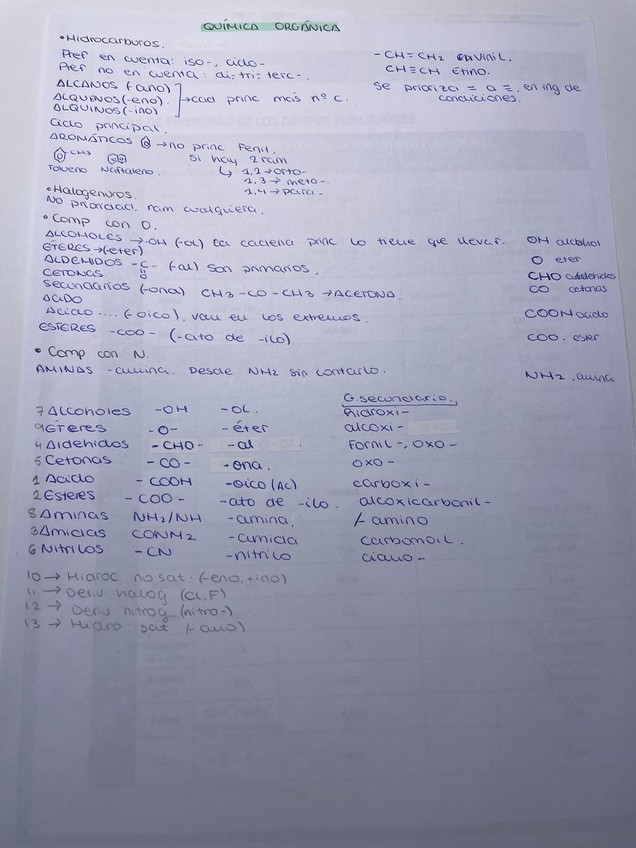 QUÍMICA ORGÁNICA
• Hidrocarburos.
Pref en cuenta: iso-, ciclo-
Pref no en cuenta: di-, tri-, terc-.
-CH=CH2 vinil.
CH≡CH Etino.
ALCANOS (-ano)
ALQUENOS (-eno) → cad princ más nº c.
ALQUINOS (-ino)
Se prioriza = a ≡, en ing de condiciones.
Ciclo principal.
AROMÁTICOS → no princ Fenil.
CH3 si hay 2 ram
Tolueno Naftaleno. ↳ 1,2 → orto-
1,3 → meta-
1,4 → para-
• Halogenuros.
No prioridad, ram cualquiera.
• Comp con O.
ALCOHOLES → -OH (-ol) La cadena princ lo tiene que llevar. OH alcohol
ÉTERES → (-eter) O eter
ALDEHIDOS -C- (-al) son primarios. CHO aldehido
CETONAS O CO cetonas
secundarios (-ona) CH3-CO-CH3 → ACETONA.
ACIDO
Acido .... (-oico), van en los extremos. COOH acido
ESTERES -COO- (-ato de -ilo) COO. ester
• Comp con N.
AMINAS -amina. Desde NH2 sin contarlo. NH2. amina
G. secundario.
7 Alcoholes -OH -OL. hidroxi-
9 ÉTERES -O- -éter alcoxi-
4 Aldehidos -CHO- -al Formil-, oxo-
5 Cetonas -CO- -ona. oxo-
1 Acido -COOH -oico (Ac) carboxi-
2 Esteres -COO- -ato de -ilo. alcoxicarbonil-
8 Aminas NH2/NH -amina. /-amino
3 Amidas CONH2 -amida carbomoil.
6 Nitrilos -CN -nitrilo ciano-
10 → Hidroc no sat. (-eno, -ino)
11 → Deriv halog (Cl, F)
12 → Deriv nitrog (nitro-)
13 → Hidro sat (-ano)